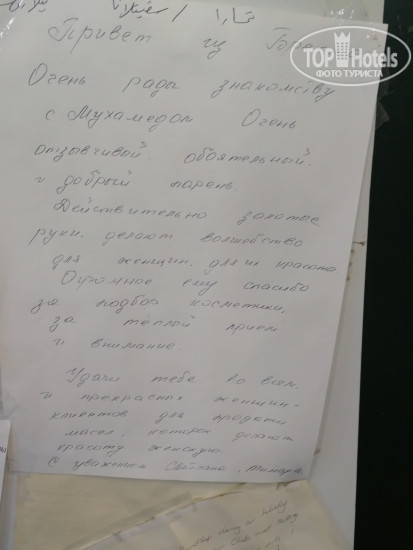 تمارا / سفيتلانا
Привет из
TOP Hotels
ФОТО ТУРИСТА
Очень рады знакомству
с Мухамедом Очень
отзывчивый. обоятельный.
и добрый парень.
Действительно золотые
руки. делают волшебство
для женщин. для их красота
Огромное ему спасибо
за подбор косметики,
за тёплый приём
и внимание.
Удачи тебе во всем.
и прекрасных женщин-
клиентов для продажи
масел, которое делают
красоту женскую.
С уважением Светлана, Тамара.